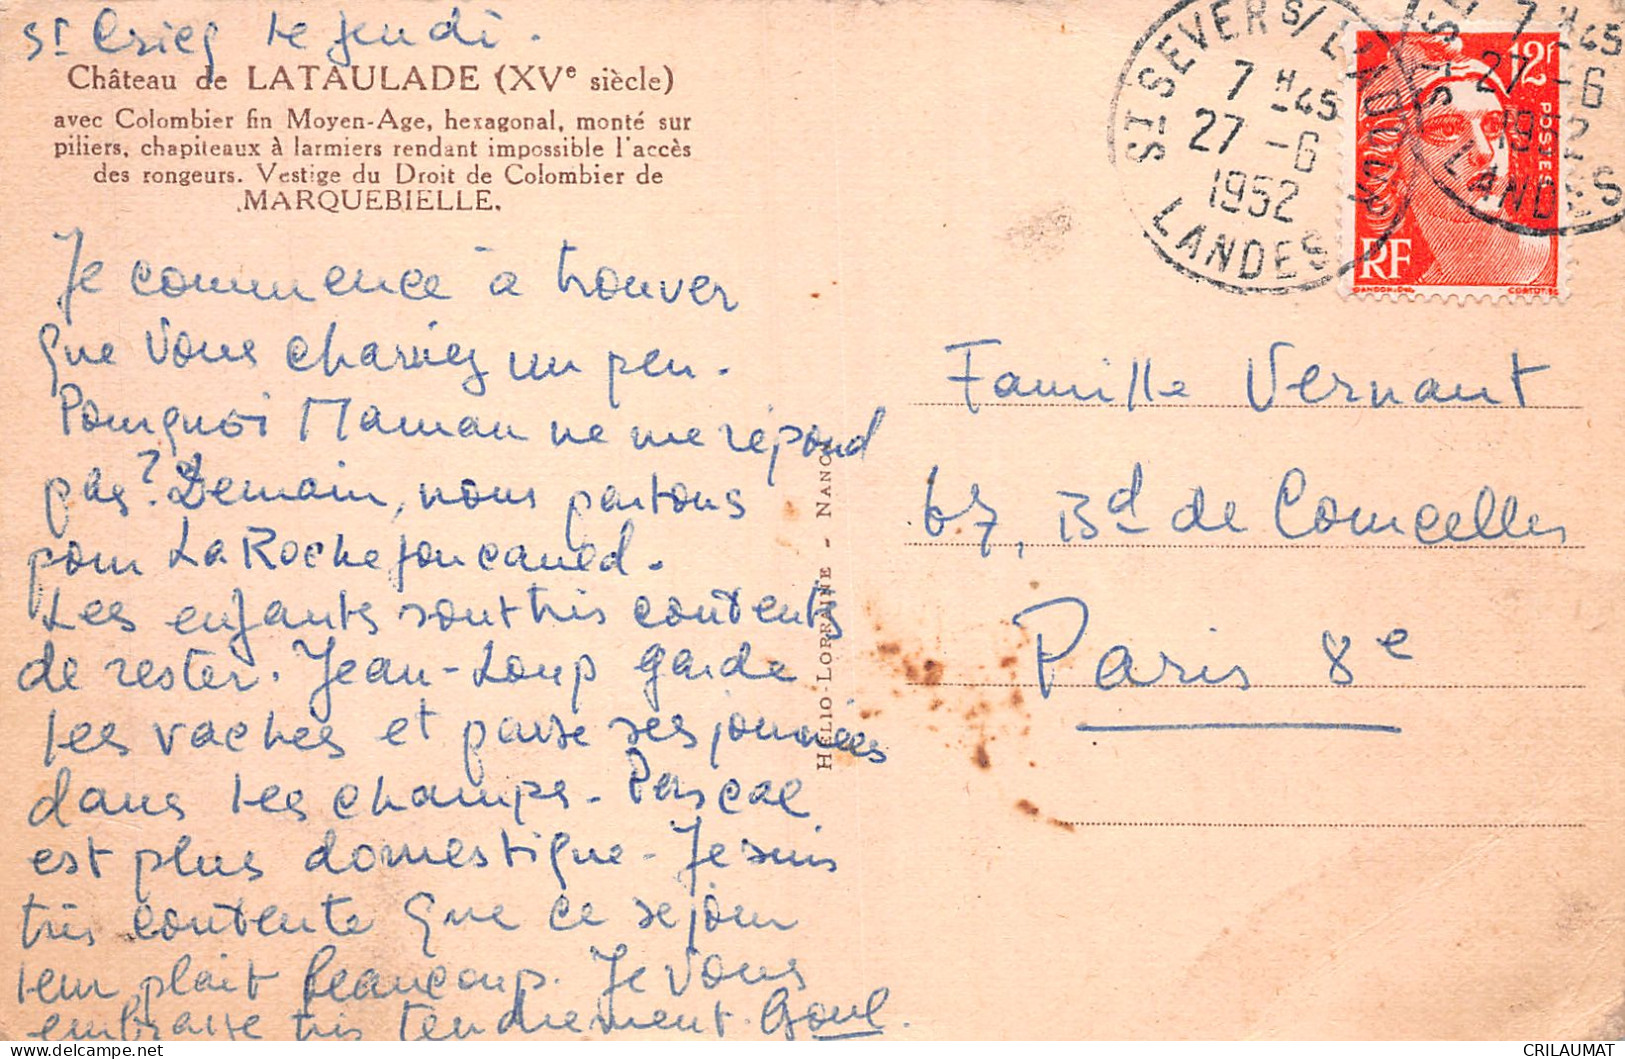 St Cricq le Jeudi.
Château de LATAULADE (XVe siècle)
avec Colombier fin Moyen-Age, hexagonal, monté sur
piliers, chapiteaux à larmiers rendant impossible l'accès
des rongeurs. Vestige du Droit de Colombier de
MARQUEBIELLE.
Je commence à trouver
que vous charriez un peu.
Pourquoi Maman ne me répond
pas? Demain, nous partons
pour La Rochefoucauld.
Les enfants sont très contents
de rester. Jean-Loup garde
les vaches et passe ses journées
dans les champs. Pascal
est plus domestique. Je suis
très contente que ce séjour
leur plait beaucoup. Je vous
embrasse très tendrement.
HÉLIO-LORRAINE - NANCY
ST SEVER S/ L'ADOUR
7 H 45
27 -6
1952
LANDES
7 H 45
27 -6
1952
LANDES
12F
POSTES
RF
GANDON.DEL.
CORTOT.SC
Famille Vernant
67, Bd de Courcelles
Paris 8e
CRILAUMAT